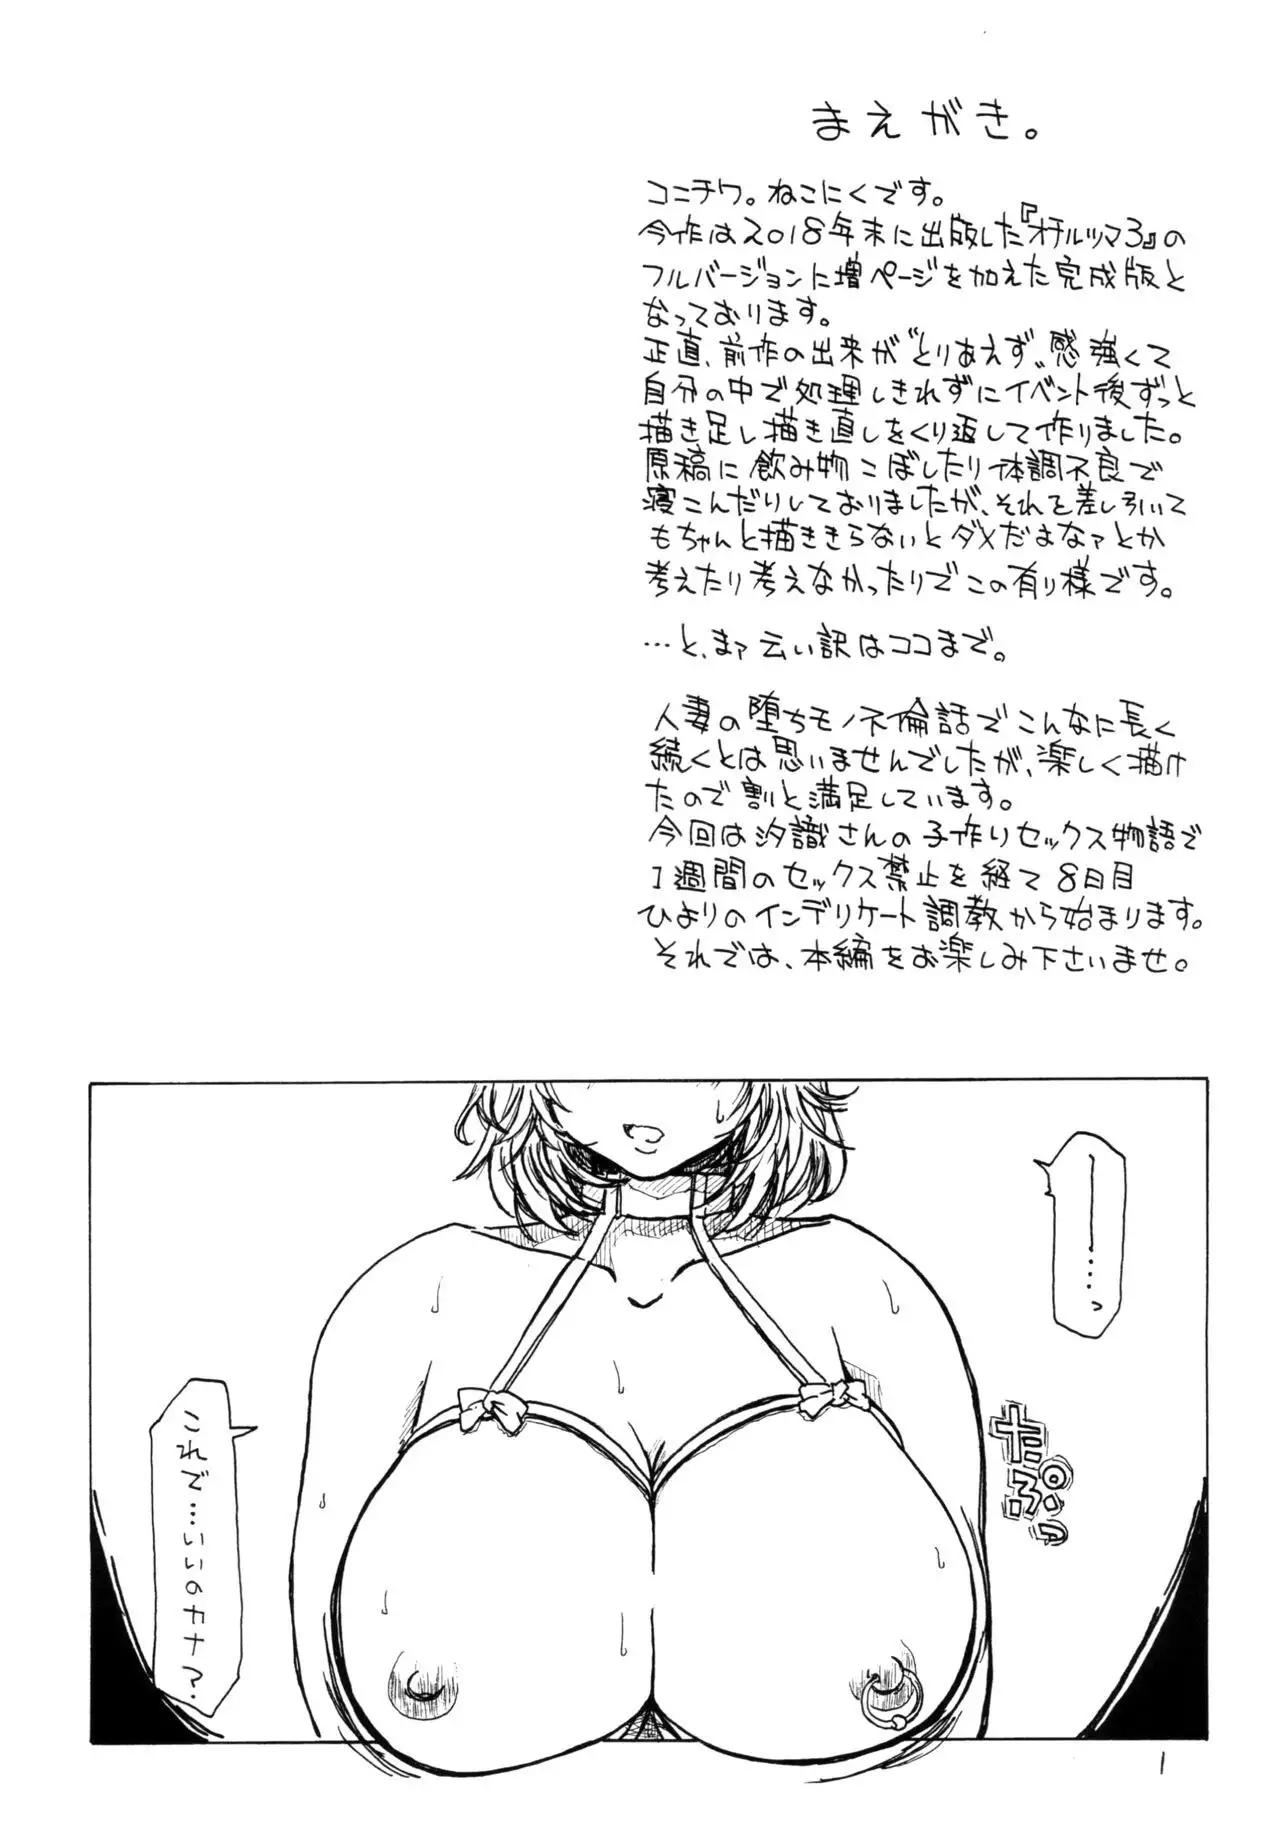 まえがき。
コニチワ。ねこにくです。
今作は2018年末に出版した『オチルツマ3』の
フルバージョンに増ページを加えた完成版と
なっております。
正直、前作の出来が〝とりあえず〟感強くて
自分の中で処理しきれずにイベント後ずっと
描き足し描き直しをくり返して作りました。
原稿に飲み物こぼしたり体調不良で
寝こんだりしておりましたが、それを差し引いて
もちゃんと描ききらないとダメだよなァとか
考えたり考えなかったりでこの有り様です。
…と、まァ云い訳はココまで。
人妻の堕ちモノ不倫話でこんなに長く
続くとは思いませんでしたが、楽しく描け
たので割と満足しています。
今回は汐識さんの子作りセックス物語で
1週間のセックス禁止を経て8日目
ひよりのインデリケート調教から始まります。
それでは、本編をお楽しみ下さいませ。
――……っ
たぷっ
これで…いいのカナ?
1